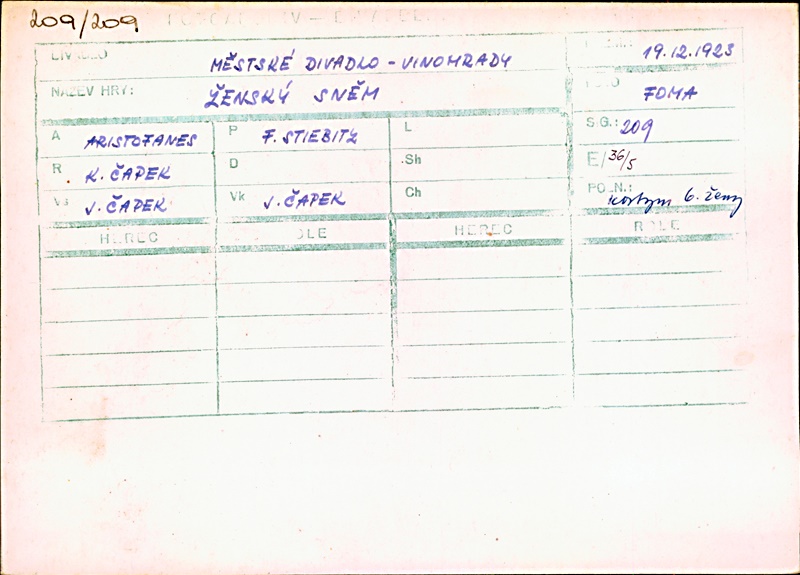 209/209
DIVADLO MĚSTSKÉ DIVADLO - VINOHRADY 19.12.1923
NÁZEV HRY: ŽENSKÝ SNĚM FOMA
A ARISTOFANES P F. STIEBITZ L S.G.: 209
R K. ČAPEK D Sh E/36/5
Vs J. ČAPEK Vk J. ČAPEK Ch POZN.: kostym 6. ženy
HEREC ROLE HEREC ROLE